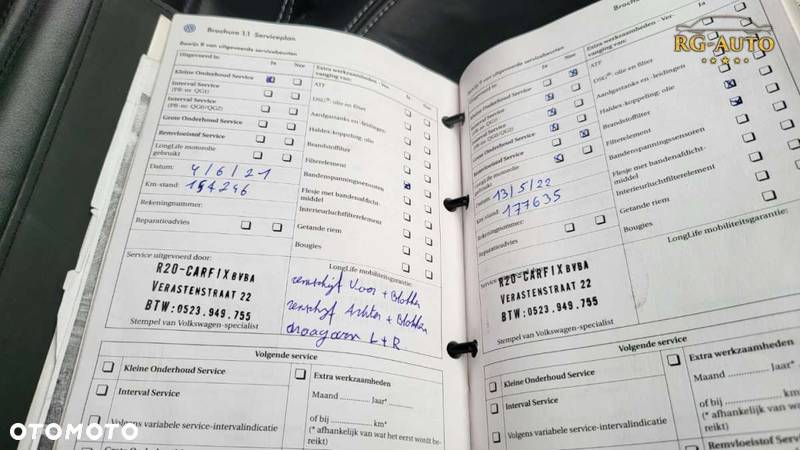 Brochure 1.1 Serviceplan
Bewijs 8 van uitgevoerde servicebeurten
Uitgevoerd te
Ja
Nee
Kleine Onderhoud Service
Interval Service
(PR-nr. QG1)
Interval Service
(PR-nr. QG0/QG2)
Grote Onderhoud Service
Remvloeistof Service
LongLife motorolie
gebruikt
Datum: 4/6/21
Km-stand: 154246
Rekeningnummer:
Reparatieadvies
Extra werkzaamheden - Ver-
vanging van:
Ja
Nee
ATF
DSG®: olie en filter
Aardgastanks en -leidingen
Haldex-koppeling: olie
Brandstoffilter
Filterelement
Bandenspanningssensoren
Flesje met bandenafdicht-
middel
Interieurluchtfilterelement
Getande riem
Bougies
Service uitgevoerd door:
R20-CARFIX BVBA
VERASTENSTRAAT 22
BTW:0523.949.755
Stempel van Volkswagen-specialist
LongLife mobiliteitsgarantie:
remschijf Voor + Blokken
remschijf Achter + Blokken
draagarm L + R
Volgende service
Kleine Onderhoud Service
Interval Service
Volgens variabele service-intervalindicatie
Grote Onderhoud Service
Extra werkzaamheden
Maand ............ Jaar*
of bij ............ km*
(* afhankelijk van wat het eerst wordt be-
reikt)
Brochure
servicebeurten
Ja
Nee
Onderhoud Service
Interval Service
(PR-nr. QG1)
Interval Service
(PR-nr. QG0/QG2)
Grote Onderhoud Service
Remvloeistof Service
LongLife motorolie
Datum: 13/5/22
Km-stand: 177635
Rekeningnummer:
Reparatieadvies
Extra werkzaamheden - Ver-
vanging van:
Ja
ATF
DSG®: olie en filter
Aardgastanks en -leidingen
Haldex-koppeling: olie
Brandstoffilter
Filterelement
Bandenspanningssensoren
Flesje met bandenafdicht-
middel
Interieurluchtfilterelement
Getande riem
Bougies
R20-CARFIX BVBA
VERASTENSTRAAT 22
BTW:0523.949.755
Stempel van Volkswagen-specialist
LongLife mobiliteitsgarantie:
Volgende service
Kleine Onderhoud Service
Interval Service
Volgens variabele service-intervalindicatie
Extra werkzaamheden
Maand ............ Jaar*
of bij ............ km*
(* afhankelijk van wat
reikt)
Remvloeistof Service
RG-AUTO
OTOMOTO